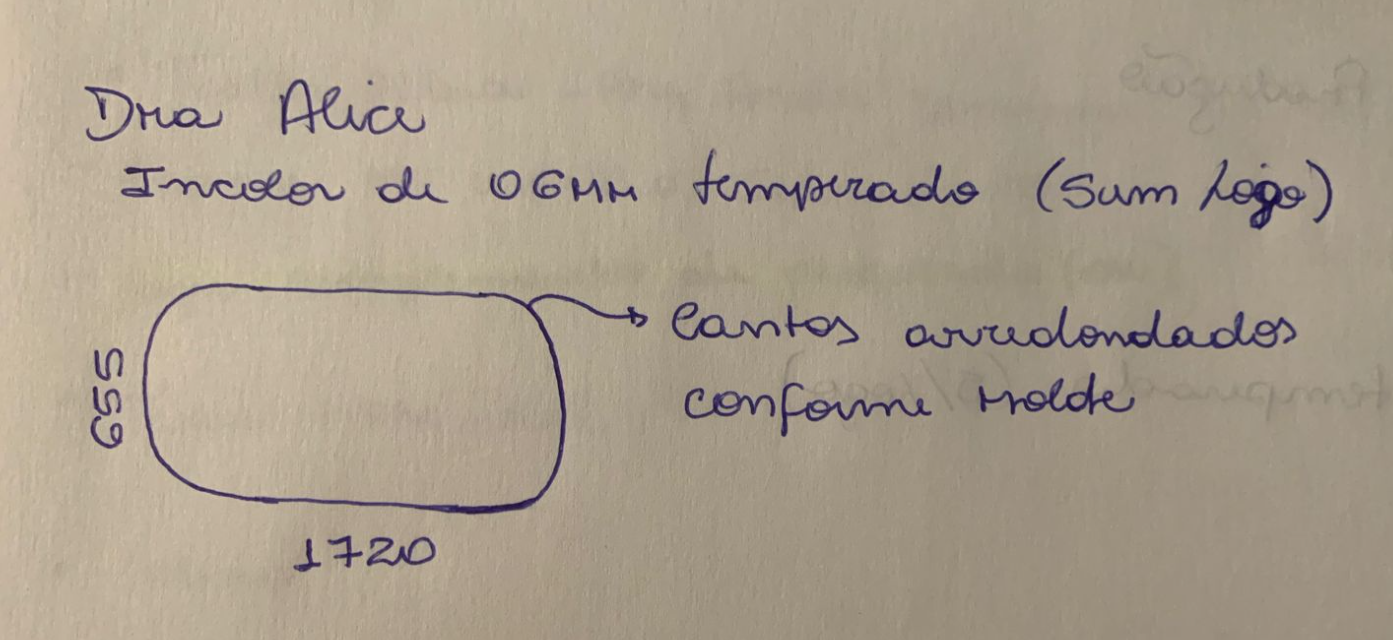 Dra Alice
Incolor de 06MM temperado (Sem logo)
Cantos arredondados
conforme Molde
655
1720